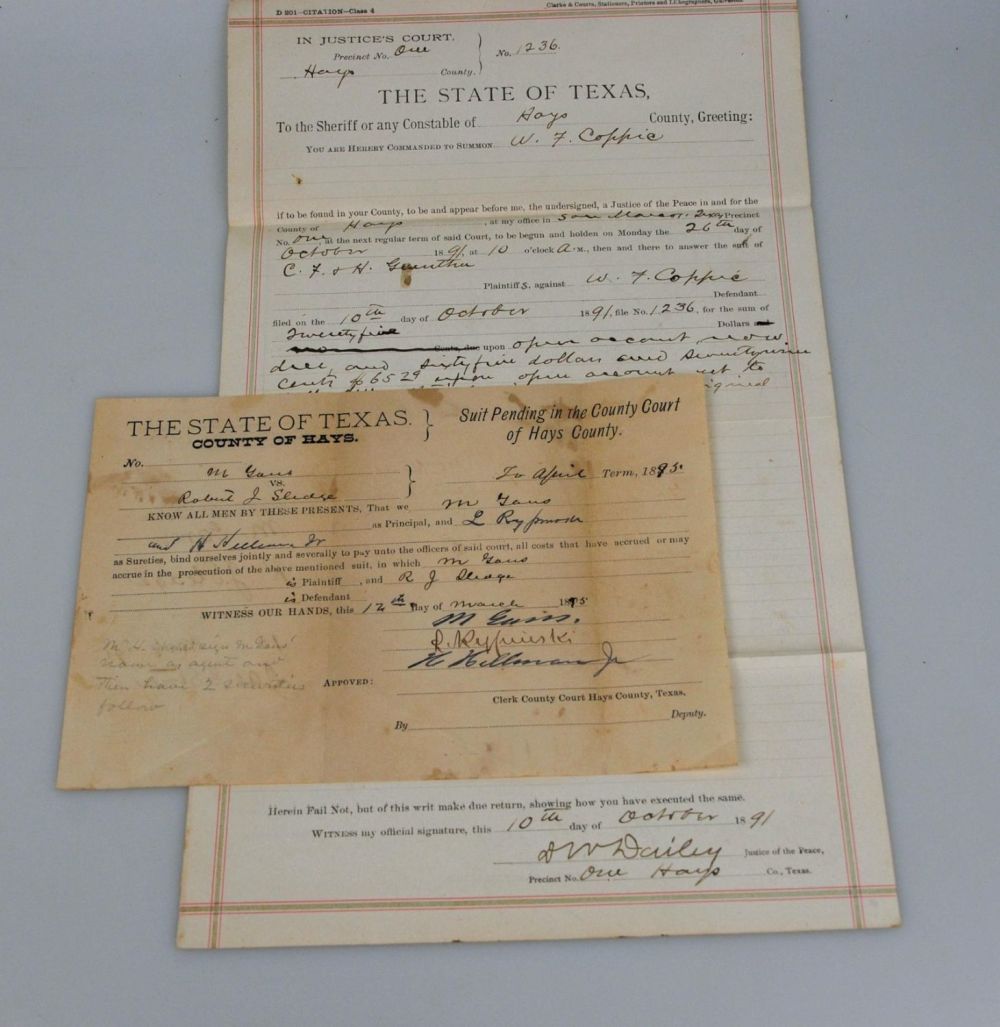 D 201—CITATION—Class 4
Clarke & Courts, Stationers, Printers and Lithographers, Galveston
IN JUSTICE'S COURT.
Precinct No. One
Hays County.
No. 1236.
THE STATE OF TEXAS,
To the Sheriff or any Constable of Hays County, Greeting:
YOU ARE HEREBY COMMANDED TO SUMMON W. F. Coppic
if to be found in your County, to be and appear before me, the undersigned, a Justice of the Peace in and for the
County of Hays, at my office in San Marcos, Precinct
No. One, at the next regular term of said Court, to be begun and holden on Monday the 26th day of
October 1891, at 10 o'clock A M., then and there to answer the suit of
C. F. & H.
Plaintiffs, against W. F. Coppic
Defendant
filed on the 10th day of October 1891, file No. 1236, for the sum of
Twentyfive Dollars and
no Cents, due upon open account now
due, and sixtyfive dollars and
cents $65 upon open account
THE STATE OF TEXAS.
COUNTY OF HAYS.
Suit Pending in the County Court
of Hays County.
No.
M Gans
VS.
Robert J Sledge
To April Term, 1895.
KNOW ALL MEN BY THESE PRESENTS, That we M Gans
as Principal, and L
and H Hillman Jr
as Sureties, bind ourselves jointly and severally to pay unto the officers of said court, all costs that have accrued or may
accrue in the prosecution of the above mentioned suit, in which M Gans
is Plaintiff, and R J Sledge
is Defendant
WITNESS OUR HANDS, this 12th day of March 1895
M Gans.
H Hillman Jr
name as agent and
then have 2 securities
follow
APPOVED:
Clerk County Court Hays County, Texas.
By Deputy.
Herein Fail Not, but of this writ make due return, showing how you have executed the same.
WITNESS my official signature, this 10th day of October 1891
D W Dailey Justice of the Peace,
Precinct No. One Hays Co., Texas.